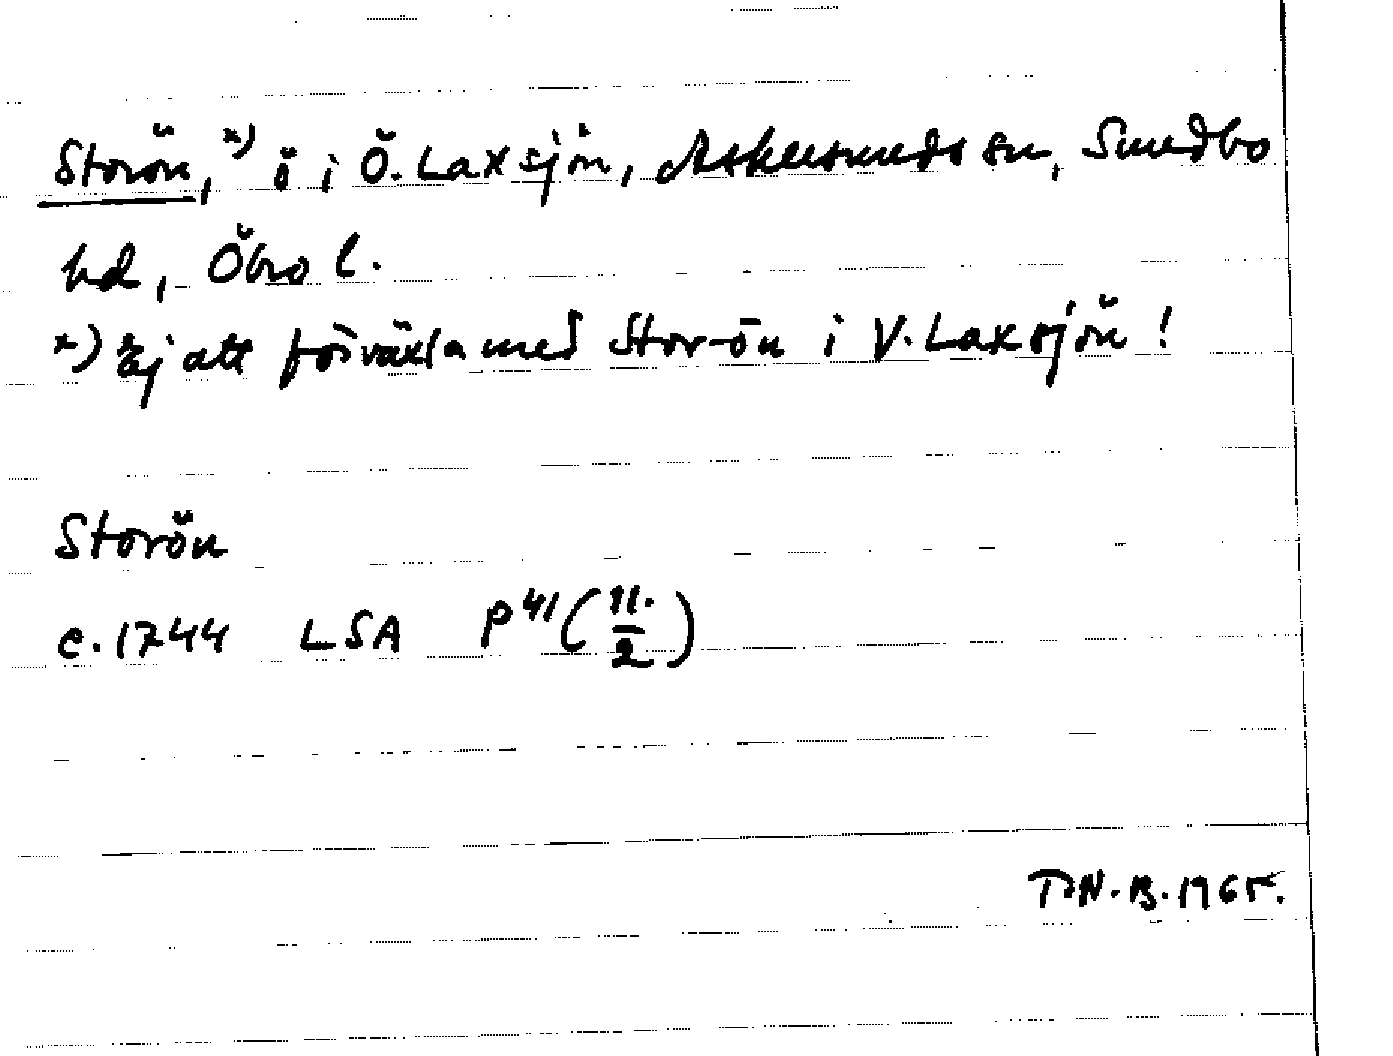 Storön, x) ö i Ö. Laxsjön, Askersunds sn, Sundbo
hd, Öbro l.
x) Ej att förväxla med Stor-ön i V. Laxsjön!
Storön
c. 1744 LSA P 41 (11./2)
1965.